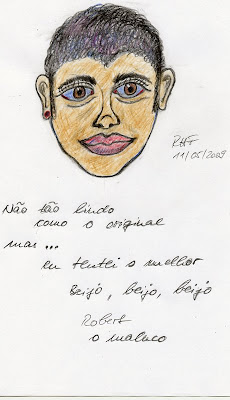 RHF
11/05/2009
Não tão lindo
como o original
mas ...
eu tentei o melhor
Beijo, beijo, beijo
Robert
o maluco